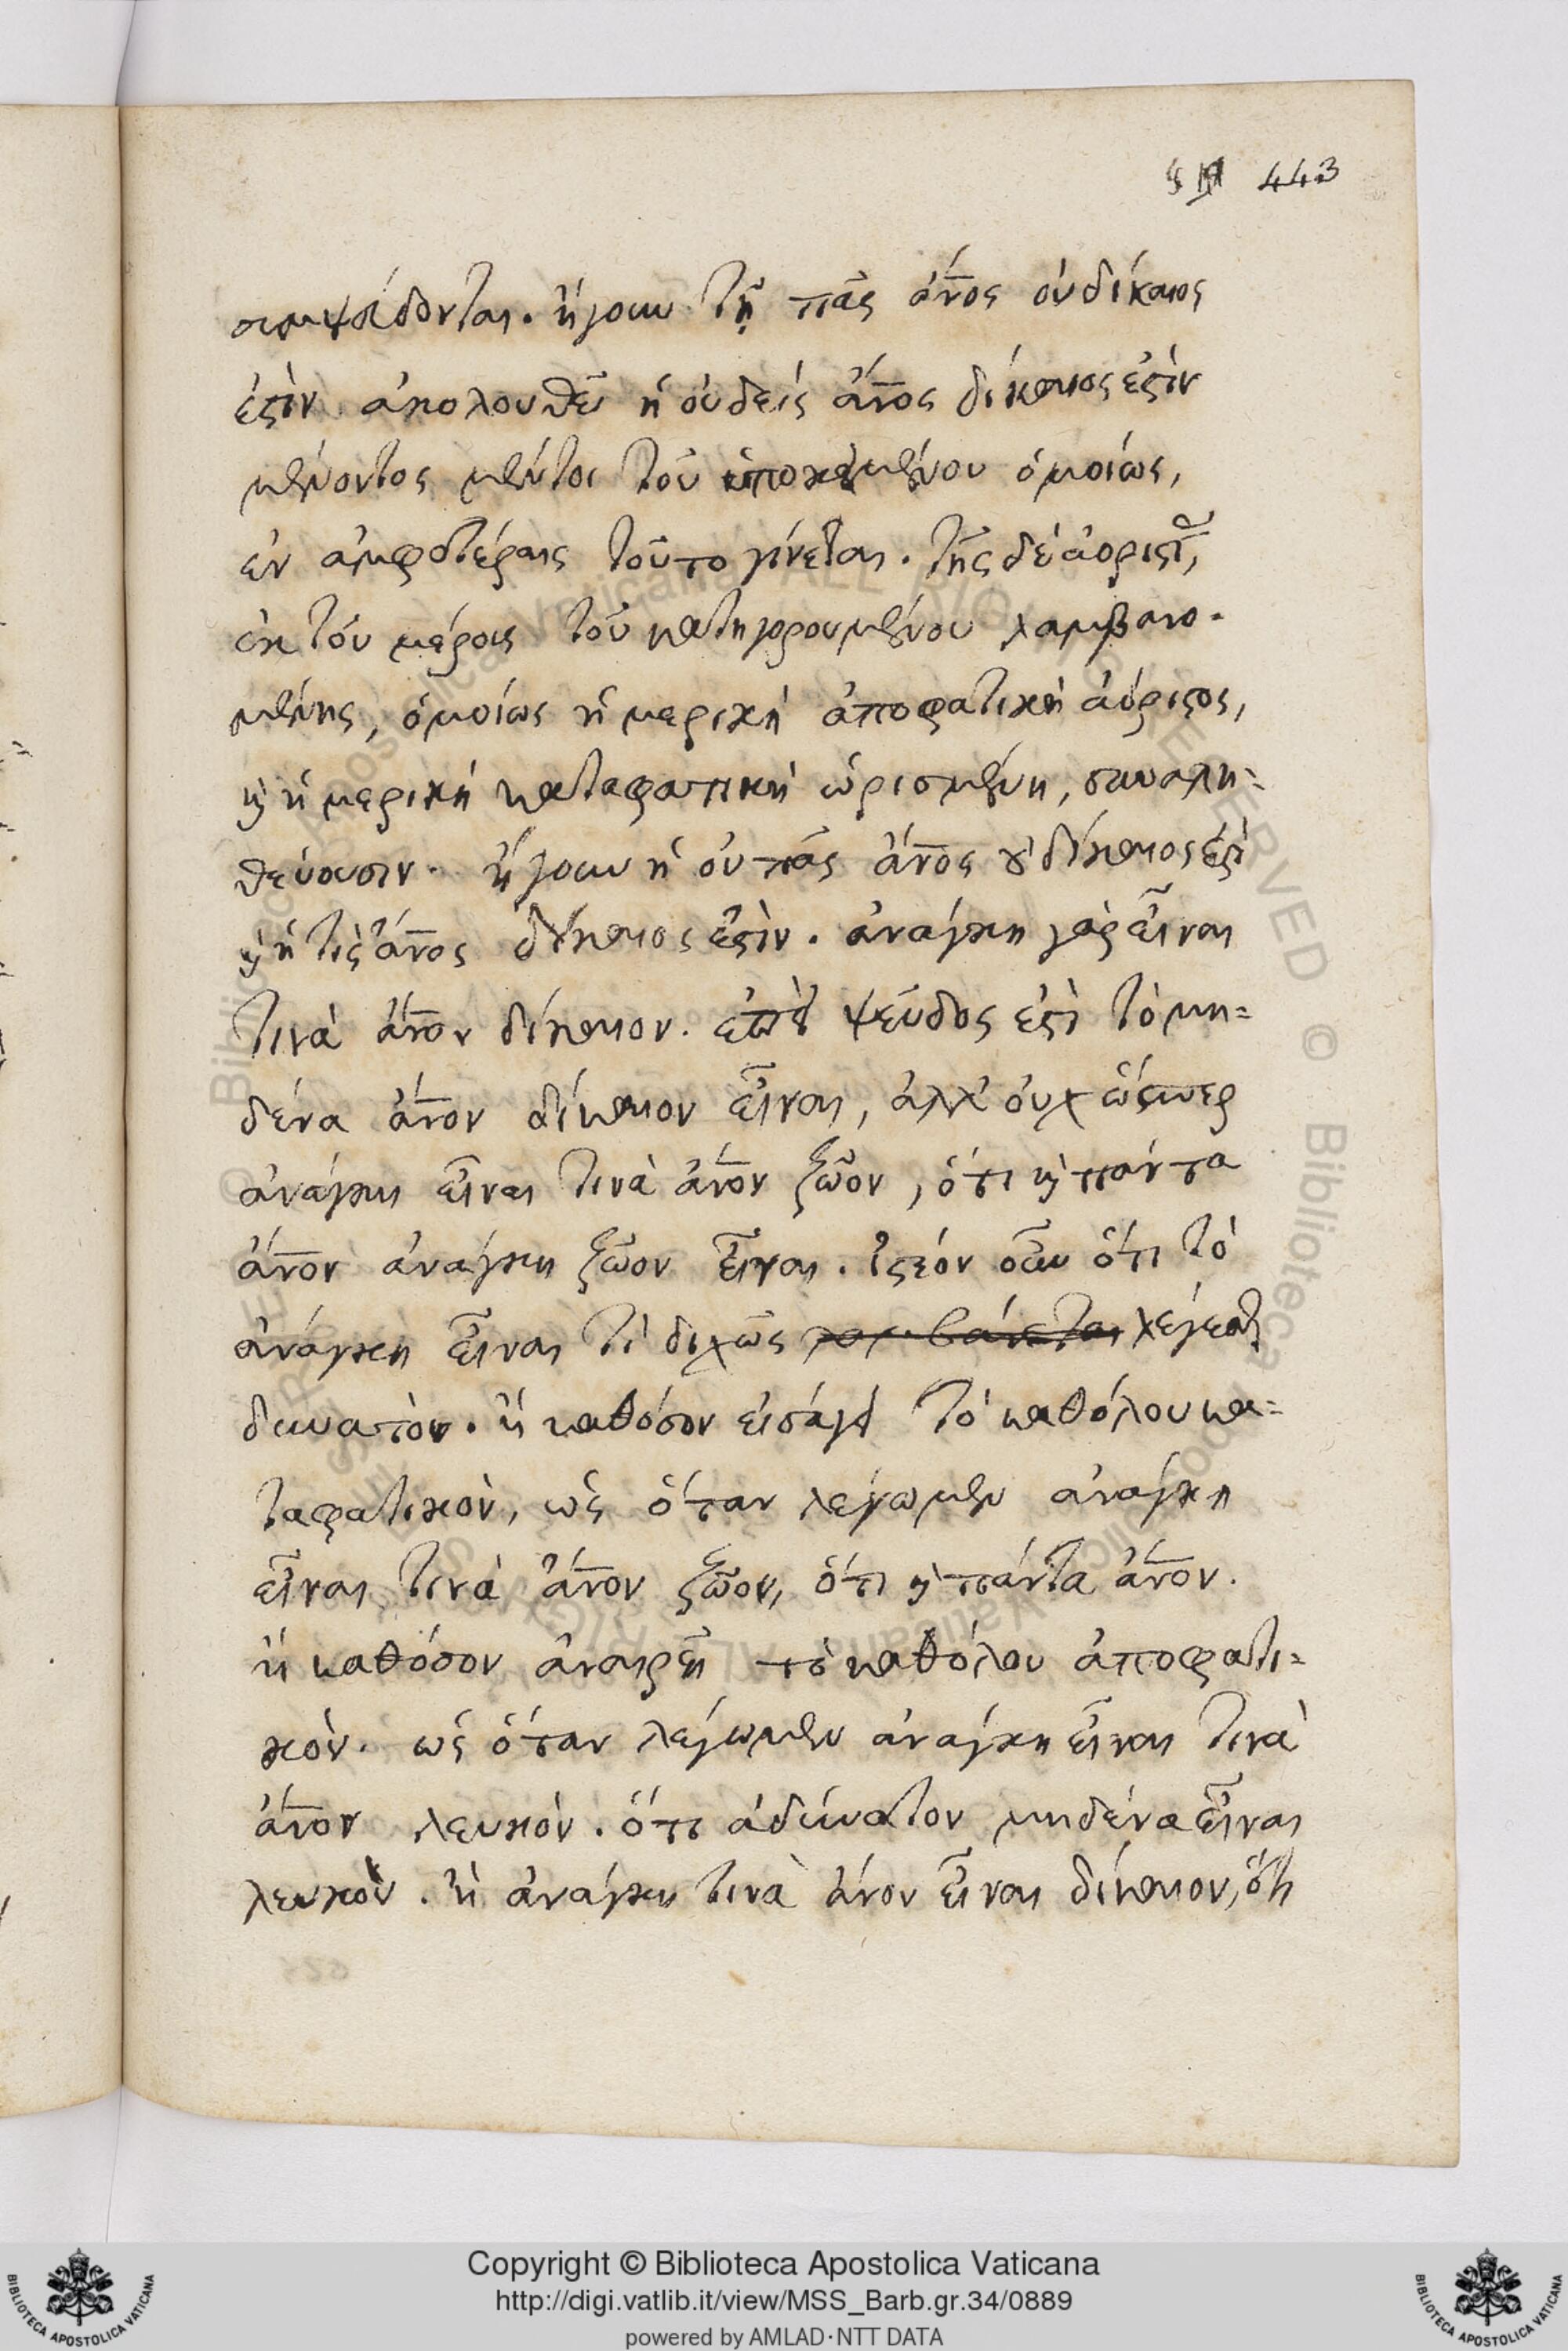 443
συμψεύδονται. ἤγουν τῇ πᾶς ἄνος οὐ δίκαιος
ἐστὶν ἀκολουθεῖ ἡ οὐδεὶς ἄνος δίκαιος ἐστὶν
μένοντος μέντοι τοῦ ὑποκειμένου ὁμοίως,
ἐν ἀμφοτέραις τοῦτο γίνεται. τῆς δὲ ἀορίστου,
ἐκ τοῦ μέρους τοῦ κατηγορουμένου λαμβανο-
μένης, ὁμοίως ἡ μερικὴ ἀποφατικὴ ἀόριστος,
καὶ ἡ μερικὴ καταφατικὴ ὡρισμένη, συναλη=
θεύουσιν. ἤγουν ἡ οὐ πᾶς ἄνος οὐ δίκαιος ἐστὶ
καὶ ἡ τὶς ἄνος δίκαιος ἐστὶν. ἀνάγκη γὰρ εἶναι
τινὰ ἄνον δίκαιον. ἐπεὶ ψεῦδος ἐστὶ τὸ μη=
δένα ἄνον δίκαιον εἶναι, ἀλλ' οὐχ ὥσπερ
ἀνάγκη εἶναι τινὰ ἄνον ζῶον, ὅτι καὶ πάντα
ἄνον ἀνάγκη ζῶον εἶναι. ἰστέον οὖν ὅτι τὸ
ἀνάγκη εἶναι τὶ διχῶς λαμβάνεται λέγεσθαι
δυνατὸν. ἢ καθόσον εἰσάγει τὸ καθόλου κα=
ταφατικὸν, ὡς ὅταν λέγωμεν ἀνάγκη
εἶναι τινὰ ἄνον ζῶον, ὅτι καὶ πάντα ἄνον.
ἢ καθόσον ἀναιρεῖ τὸ καθόλου ἀποφατι=
κὸν. ὡς ὅταν λέγωμεν ἀνάγκη εἶναι τινὰ
ἄνον λευκὸν. ὅτι ἀδύνατον μηδένα εἶναι
λευκὸν. ἢ ἀνάγκη τινὰ ἄνον εἶναι δίκαιον, ὅτι
Copyright © Biblioteca Apostolica Vaticana
http://digi.vatlib.it/view/MSS_Barb.gr.34/0889
powered by AMLAD·NTT DATA